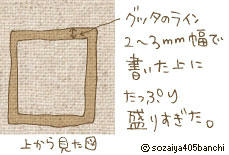 グッタのライン
2〜3mm幅で
書いた上に
たっぷり
盛りすぎた。
上から見た図
©sozaiya405banchi